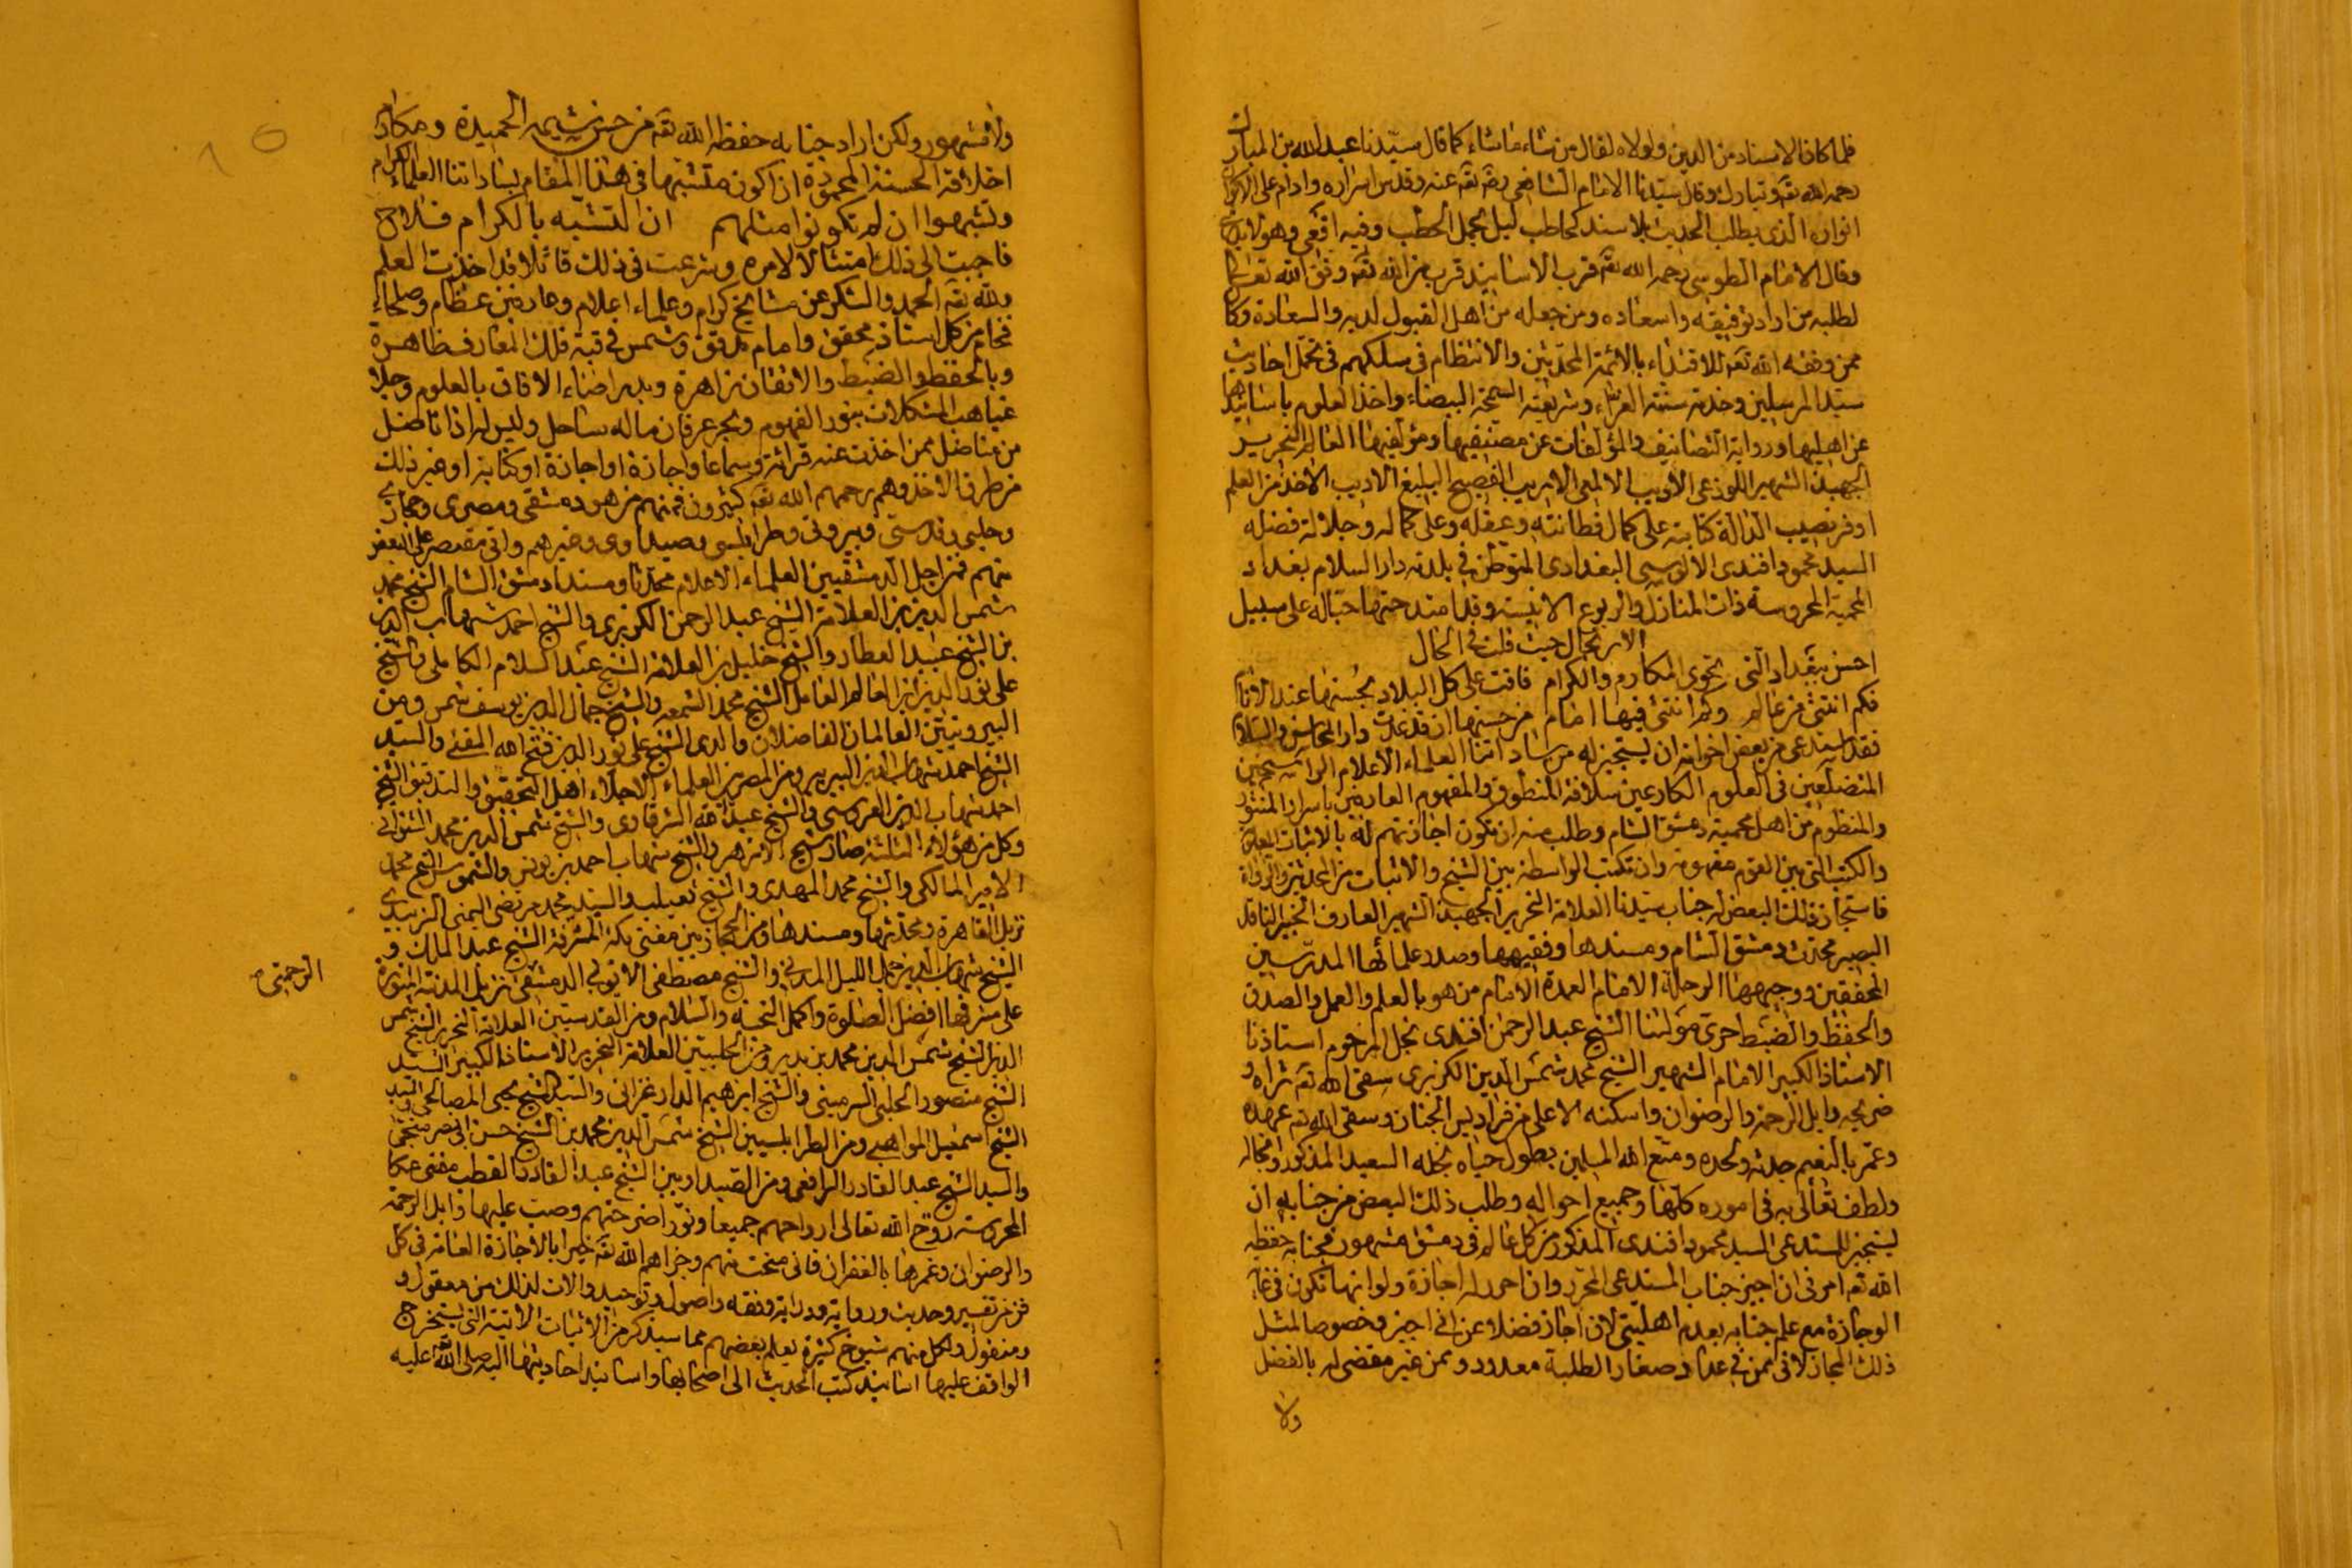 فلما كان الاسناد من الدين ولولاه لقال من شاء ما شاء كما قال سيدنا عبد الله بن المبارك
رحمه الله تعه وتبارك وقال سيدنا الامام الشافعي رضه تعه عنه وقدس اسراره وادام على الاكوان
انواره الذي يطلب الحديث بلا سند كحاطب ليل يحمل الحطب وفيه افعى وهو لا يدري
وقال الامام الطوسي رحمه الله تعه قرب الاسانيد قرب من الله تعه وفق الله تعالى
لطلبه من اراد توفيقه واسعاده ومن جعله من اهل القبول لديه والسعادة وكان
ممن وفقه الله تعه للاقتداء بالائمة المحدثين والانتظام في سلكهم في تحمل احاديث
سيد المرسلين وخدمة سنته الغراء وشريعته السمحة البيضاء واخذ العلوم باسانيدها
عن اهليها ورواية التصانيف والمؤلفات عن مصنفيها ومؤلفيها العالم النحرير
الجهبذ الشهير اللوذعي الاديب الالمعي الاريب الفصيح البليغ الاديب الاخذ من العلم
اوفر نصيب الدالة كتابته على كمال فطانته وعقله وعلى كماله وجلالة فضله
السيد محمود افندي الالوسي البغدادي المتوطن في بلدته دار السلام بغداد
المحمية المحروسة ذات المنازل والربوع الانيسة وقد امتدحتها حباله على سبيل
الارتجال حيث قلت في الحال
احسن ببغداد التي تحوي المكارم والكرام فاقت على كل البلاد بحسنها عند الانام
فكم انتشى من عالم وثم انتشى فيها امام من حسنها ان قد غدت دار المحاسن والسلام
فقد استدعى من بعض اخوانه ان يستجيز له من ساداتنا العلماء الاعلام الراسخين
المتضلعين في العلوم الكارعين سلافة المنطوق والمفهوم العارفين باسرار المنثور
والمنظوم من اهل محمية دمشق الشام وطلب منه ان تكون اجازتهم له بالاثبات
والكتب التي بين القوم مفهومة وان تكتب الواسطة بين الشيخ والاثبات من المحدثين والرواة
فاستجاز ذلك البعض له جناب سيدنا العلامة النحرير الجهبذ الشهير العارف الخبير الناقد
البصير محدث دمشق الشام ومسندها وفقيهها وصدر علمائها المدرسين
المحققين ووجيهها الرحلة الامام العمدة الامام من هو بالعلم والعمل والصدق
والحفظ والضبط حري مولنا الشيخ عبد الرحمن افندي نجل المرحوم استاذنا
الاستاذ الكبير الامام الشهير الشيخ محمد شمس الدين الكزبري سقى الله تعه ثراه و
ضريحه وابل الرحمة والرضوان واسكنه الاعلى من فراديس الجنان وسقى الله تعه عهده
وعمر بالنعيم جدثه ولحده ومتع الله المسلمين بطول حياة نجله السعيد المذكور وانجاله
ولطف تعالى به في اموره كلها وجميع احواله وطلب ذلك البعض من جنابه ان
يستجيز للمستدعي السيد محمود افندي المذكور من كل عالم في دمشق مشهور فجنابه حفظه
الله تعه امرني ان اجيز جناب المستدعي المحرر وان احرر له اجازة ولو انها تكون في غاية
الوجازة مع علم جنابه بعدم اهليتي لان اجاز فضلا عن اني اجيز وخصوصا لمثل
ذلك المجاز لاني ممن في عداد صغار الطلبة معدود وممن غير مقضي له بالفضل
ولا
ولا مشهور ولكن اراد جنابه حفظه الله تعه من حسن شيمه الحميدة ومكارم
اخلاقه الحسنة المحمودة ان اكون متشبها في هذا المقام بساداتنا العلماء الكرام
وتشبهوا ان لم تكونوا مثلهم ان التشبه بالكرام فلاح
فاجبت الى ذلك امتثالا لامره وشرعت في ذلك قائلا قد اخذت العلم
ولله تعه الحمد والشكر عن مشايخ كرام وعلماء اعلام وعارفين عظام وصلحاء
فخام من كل استاذ محقق وامام مدقق وشمس في قبة فلك المعارف ظاهرة
وبالحفظ والضبط والاتقان زاهرة وبدر اضاء الافاق بالعلوم وجلا
غياهب المشكلات بنور الفهوم وبحر عرفان ماله ساحل وليس له اذا ناضل
من مناضل ممن اخذت عنه قرائة وسماعا واجازة او اجازة او كتابة او غير ذلك
من طرق الاخذ وهم رحمهم الله تعه كثيرون فمنهم من هو دمشقي ومصري وحجازي
وحلبي وقدسي وبيروتي وطرابلسي وصيداوي وغيرهم واني مقتصر على البعض
منهم فمن اجل الدمشقيين العلماء الاعلام محدثا ومسند دمشق الشام الشيخ محمد
شمس الدين بن العلامة الشيخ عبد الرحمن الكزبري والشيخ احمد شهاب الدين
بن الشيخ عبيد العطار والشيخ خليل بن العلامة الشيخ عبد السلام الكاملي والشيخ
علي نور الدين بن العالم العامل الشيخ محمد الشمعه والشيخ جمال الدين يوسف شمس ومن
البيروتيين العالمان الفاضلان والدي الشيخ علي نور الدين فتح الله المفتي والسيد
الشيخ احمد شهاب الدين البربير ومن المصريين العلماء الاجلاء اهل التحقيق والتدقيق الشيخ
احمد شهاب الدين العروسي والشيخ عبد الله الشرقاوي والشيخ شمس الدين محمد الشنواني
وكل من هؤلاء الثلثة صار شيخ الازهر والشيخ شهاب احمد بن يونس والشموس الشيخ محمد
الامير المالكي والشيخ محمد المهدي والشيخ ثعيلب والسيد محمد مرتضى اليمني الزبيدي
نزيل القاهرة ومحدثها ومسندها ومن الحجازيين مفتي مكة المشرفة الشيخ عبد الملك و
الشيخ شهاب الدين جمل الليل المدني والشيخ مصطفى الايوبي الدمشقي نزيل المدينة المنورة
الرحمتي
على مشرفها افضل الصلوة واكمل التحية والسلام ومن القدسيين العلامة النحرير الشيخ شمس
الدين الشيخ شمس الدين محمد بن بدير ومن الحلبيين العلامة النحرير الاستاذ الكبير السيد
الشيخ منصور الحلبي السرميني والشيخ ابرهيم الدارعزاني والسيد الشيخ يحيى المصالحي والسيد
الشيخ اسمعيل المواهبي ومن الطرابلسيين الشيخ شمس الدين محمد بن الشيخ حسن
والسيد الشيخ عبد القادر الرافعي ومن الصيداويين الشيخ عبد القادر القطب مفتي عكا
المحروسة روح الله تعالى ارواحهم جميعا ونور اضرحتهم وصب عليها وابل الرحمة
والرضوان وغمرها بالغفران فاني منحت منهم وجزاهم الله تعه خيرا بالاجازة العامة في كل
فن من تفسير وحديث ورواية ودراية وفقه واصول وتوحيد والات لذلك من معقول و
ومنقول ولكل منهم شيوخ كثيرة يعلم بعضهم مما سيذكر من الاثبات الاتية التي يستخرج
الواقف عليها اسانيد كتب الحديث الى اصحابها واسانيد احاديثها اليه صلى الله عليه